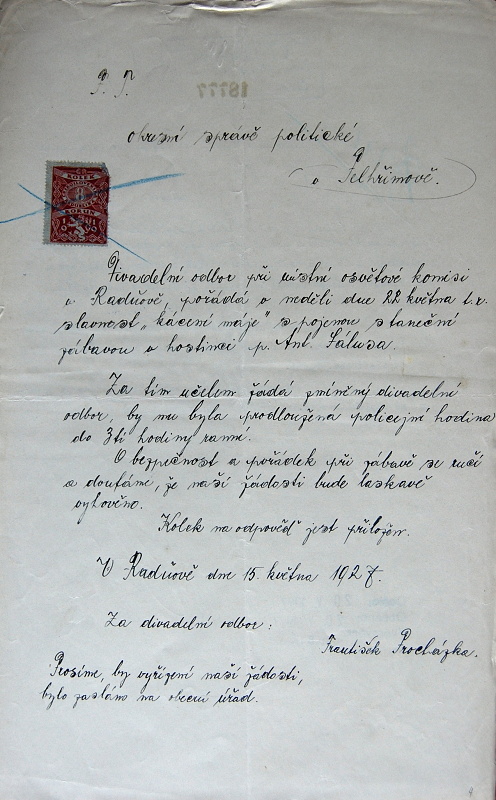 P. T.
okresní správě politické
v Pelhřimově.
KOLEK
KORUN
Divadelní odbor při místní osvětové komisi
v Radňově, pořádá v neděli dne 22 května t. r.
slavnost „kácení máje" spojenou s taneční
zábavou v hostinci p. Ant. Fálusa.
Za tím účelem žádá zmíněný divadelní
odbor, by mu byla prodloužená policejní hodina
do 3tí hodiny ranní.
O bezpečnost a pořádek při zábavě se ručí
a doufáme, že naší žádosti bude laskavě
vyhověno.
Kolek na odpověď jest přiložen.
V Radňově dne 15. května 1927.
Za divadelní odbor:
František Procházka.
Prosíme, by vyřízení naší žádosti,
bylo zaslám na obecní úřad.